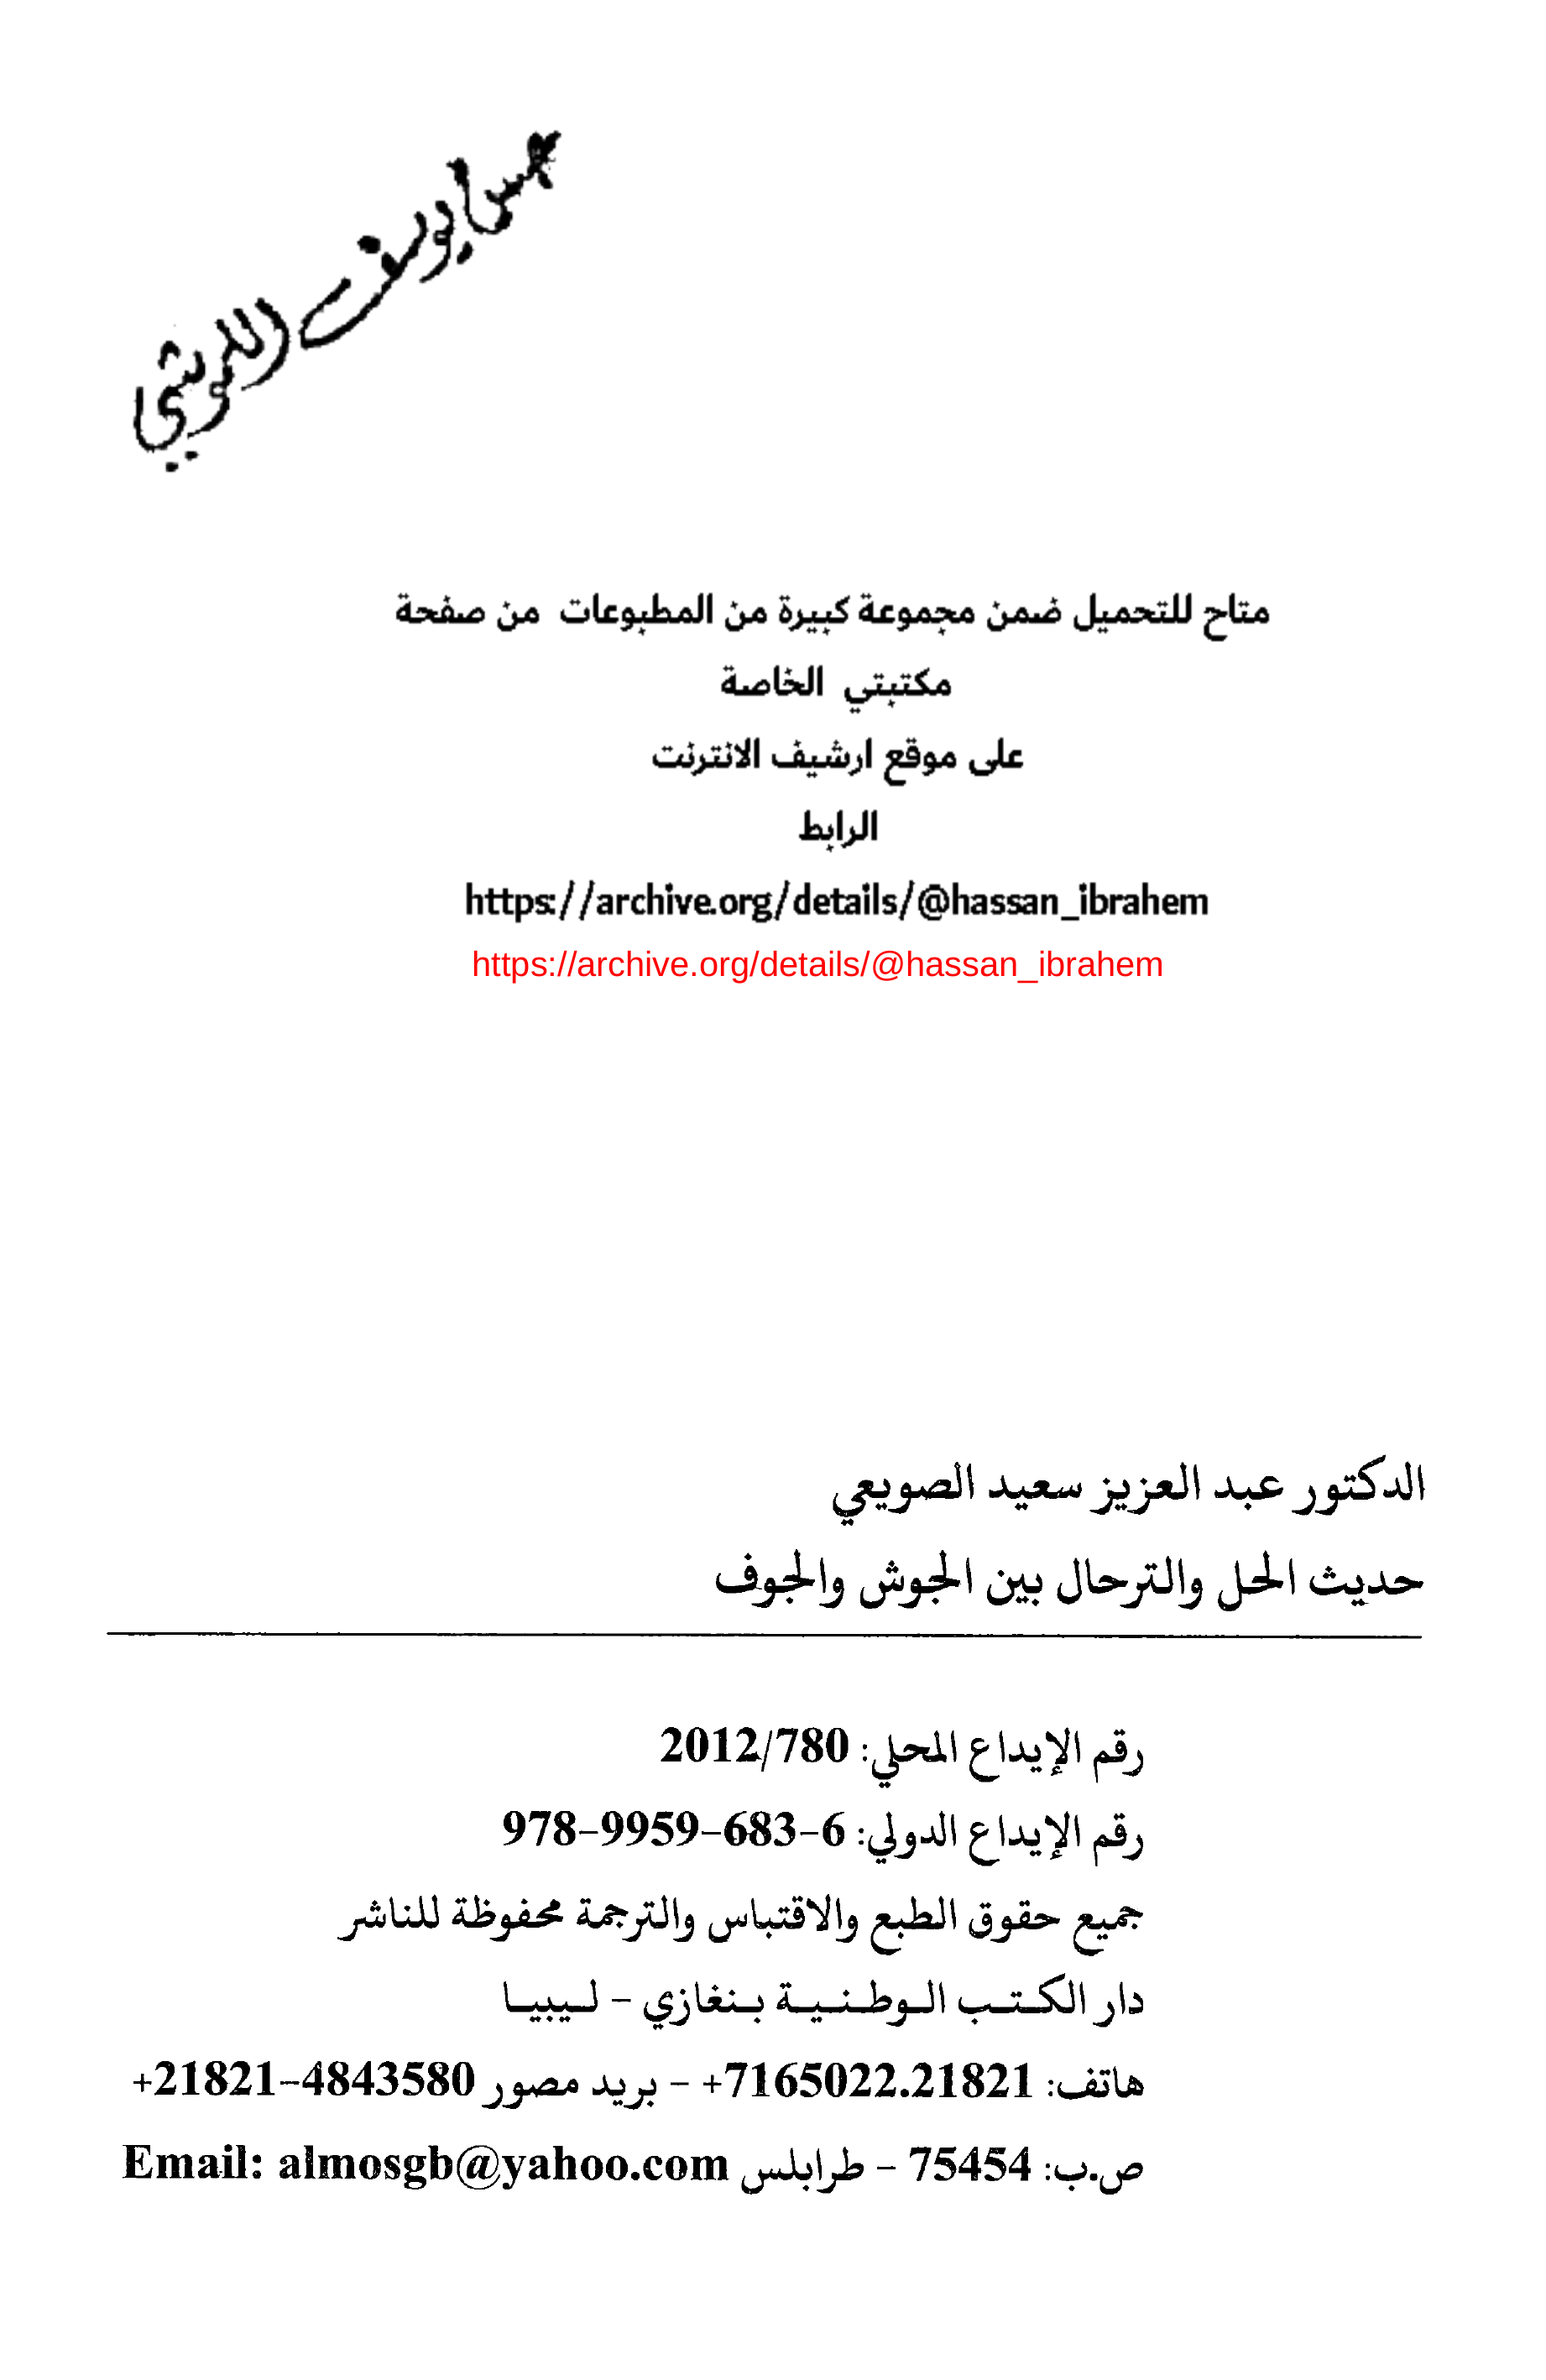 يوسف
متاح للتحميل ضمن مجموعة كبيرة من المطبوعات من صفحة
مكتبتي الخاصة
على موقع ارشيف الانترنت
الرابط
https://archive.org/details/@hassan_ibrahem
https://archive.org/details/@hassan_ibrahem
الدكتور عبد العزيز سعيد الصويعي
حديث الحل والترحال بين الجوش والجوف
رقم الإيداع المحلي: 2012/780
رقم الإيداع الدولي: 6-683-9959-978
جميع حقوق الطبع والاقتباس والترجمة محفوظة للناشر
دار الكتب الوطنية بنغازي - ليبيا
هاتف: 7165022.21821+ - بريد مصور 4843580-21821+
ص.ب: 75454 - طرابلس Email: almosgb@yahoo.com